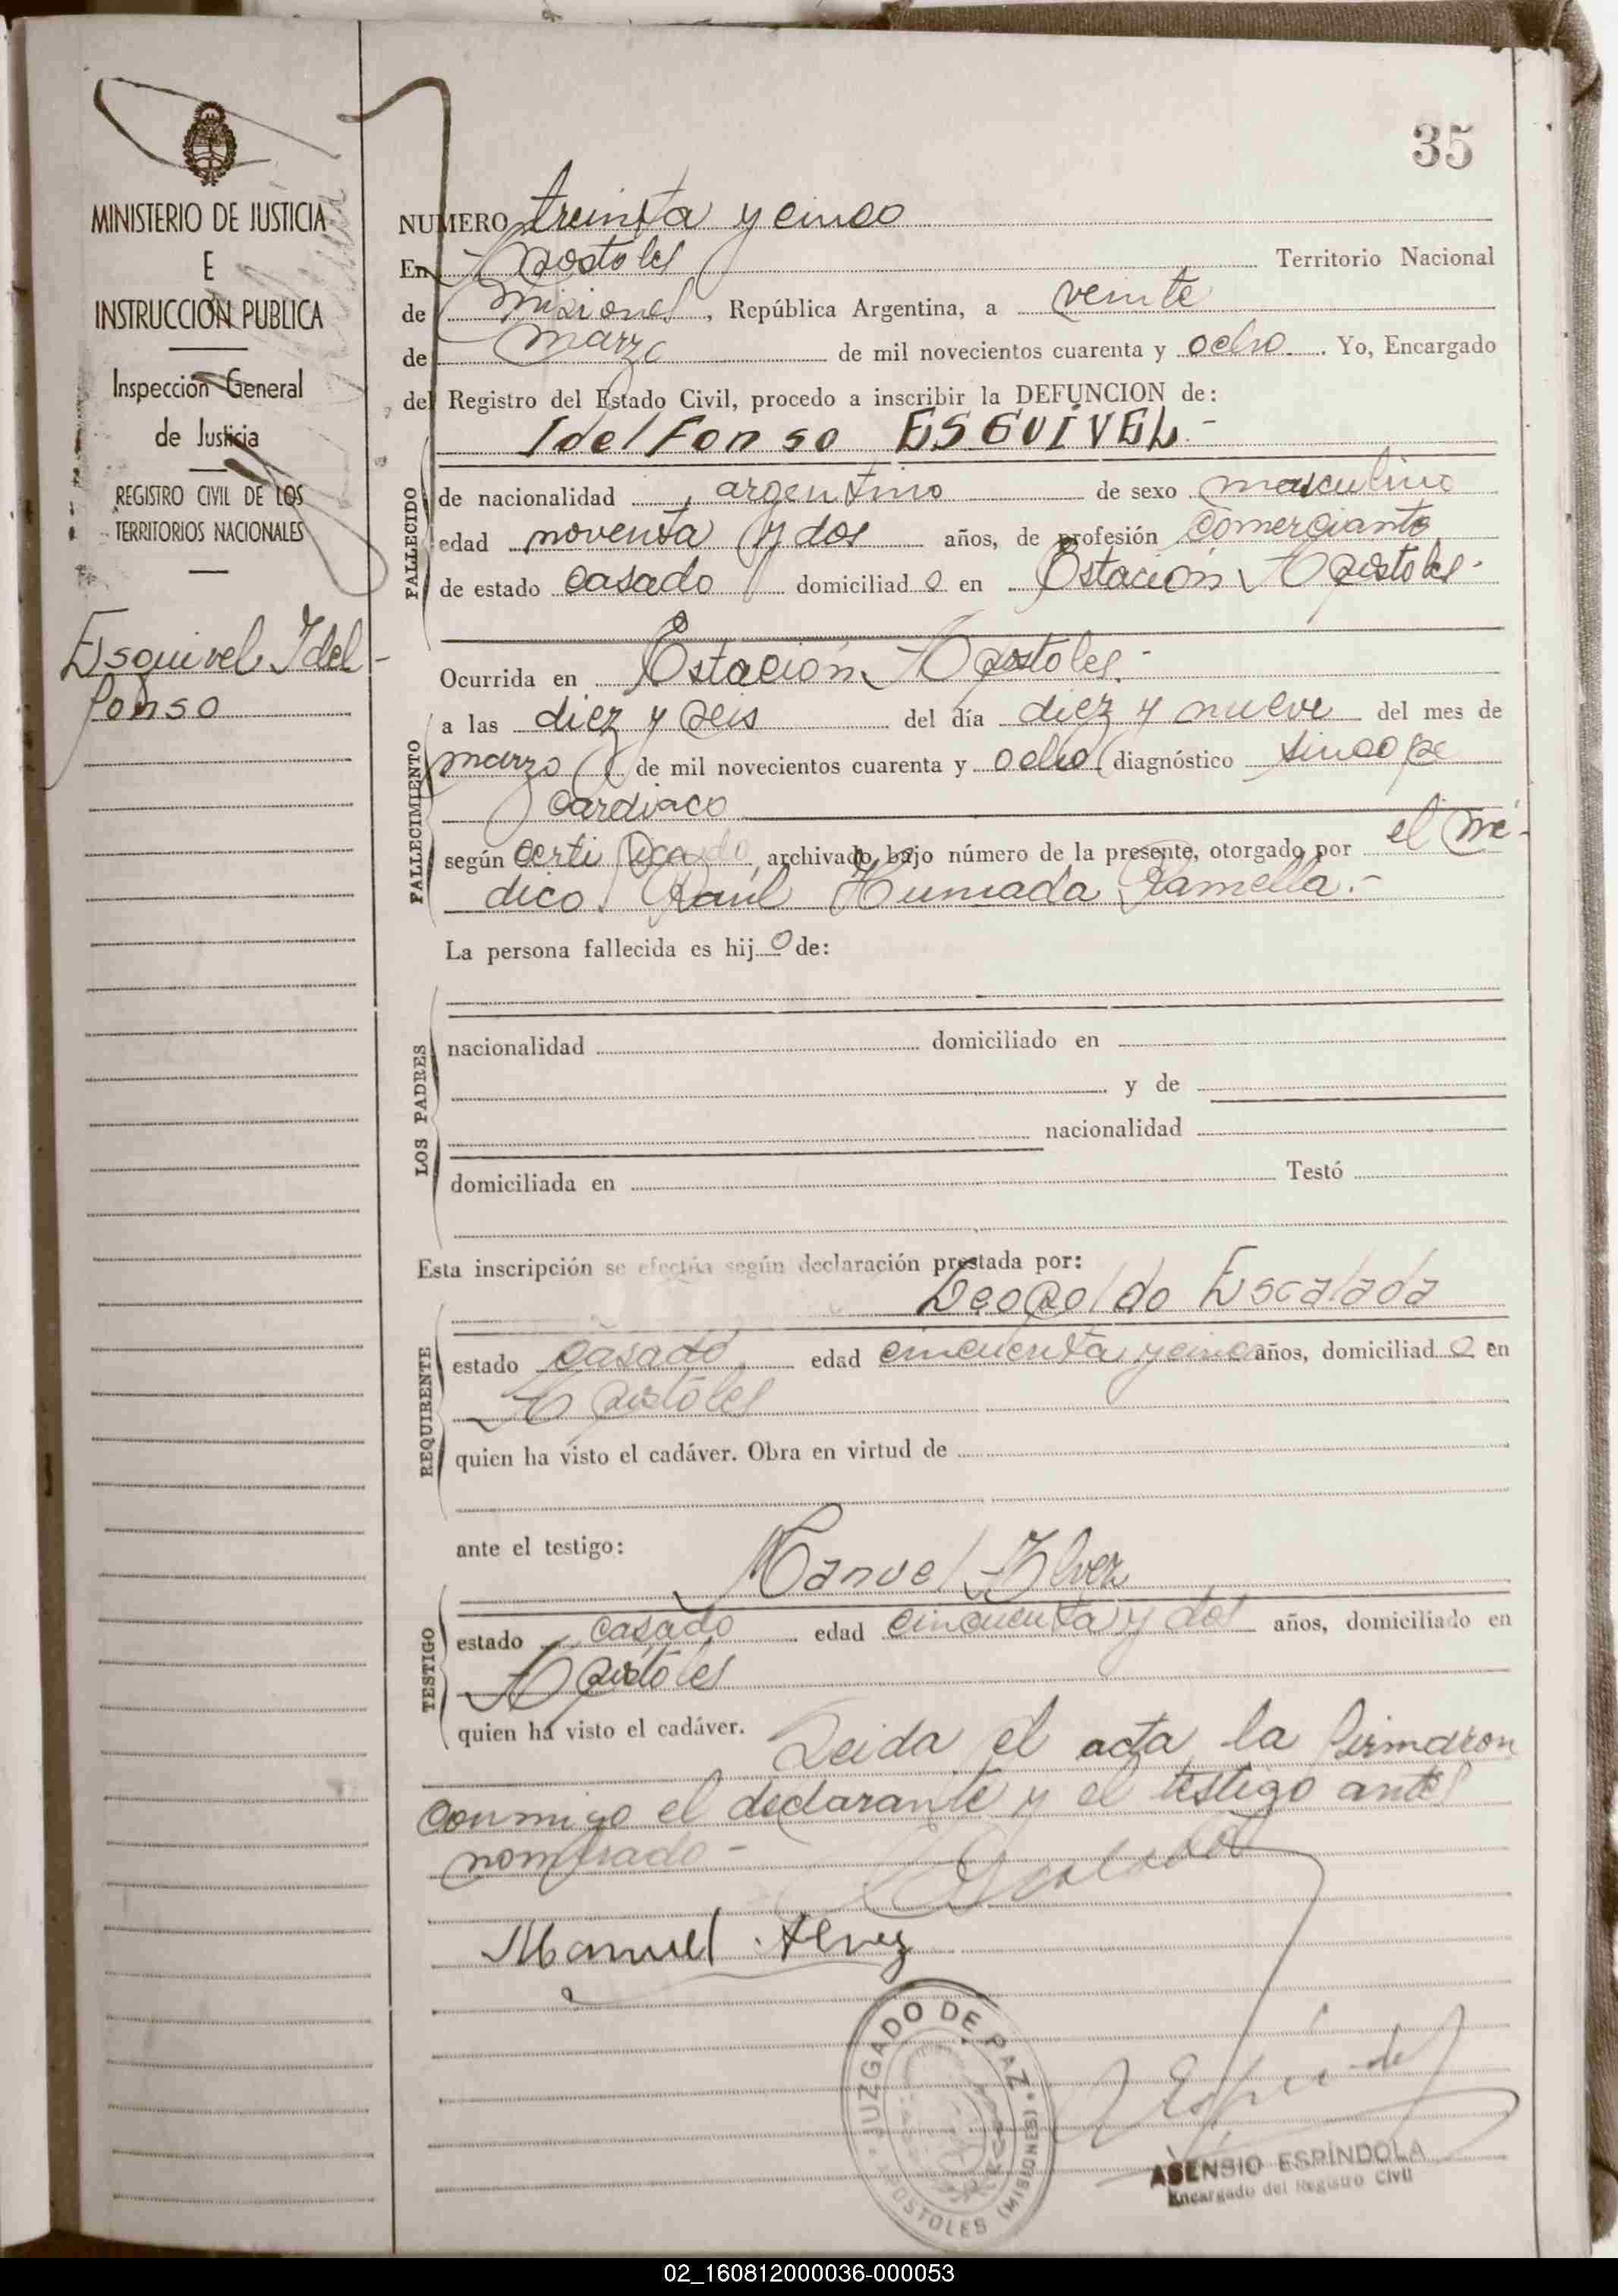 35
MINISTERIO DE JUSTICIA
E
INSTRUCCION PUBLICA
Inspección General
de Justicia
REGISTRO CIVIL DE LOS
TERRITORIOS NACIONALES
Esquivel Idel-
fonso
NUMERO treinta y cinco
En Apostoles Territorio Nacional
de Misiones, República Argentina, a veinte
de marzo de mil novecientos cuarenta y ocho. Yo, Encargado
del Registro del Estado Civil, procedo a inscribir la DEFUNCION de:
Idelfonso ESQUIVEL.-
FALLECIDO
de nacionalidad argentino de sexo masculino
edad noventa y dos años, de profesión comerciante
de estado casado domiciliado en Estación Apostoles.
FALLECIMIENTO
Ocurrida en Estación Apostoles.-
a las diez y seis del día diez y nueve del mes de
marzo de mil novecientos cuarenta y ocho diagnóstico sincope
cardiaco
según certificado archivado bajo número de la presente, otorgado por el mé-
dico Raúl Humada Ramella.-
La persona fallecida es hijo de:
LOS PADRES
nacionalidad domiciliado en
y de
nacionalidad
domiciliada en Testó
Esta inscripción se efectúa según declaración prestada por:
Leopoldo Escalada
REQUIRENTE
estado casado, edad cincuenta y cinco años, domiciliado en
Apostoles
quien ha visto el cadáver. Obra en virtud de
ante el testigo:
Manuel Alvez
TESTIGO
estado casado edad cincuenta y dos años, domiciliado en
Apostoles
quien ha visto el cadáver. Leida el acta la firmaron
conmigo el declarante y el testigo antes
nombrado-
Escalada
Manuel Alvez
JUZGADO DE PAZ
APOSTOLES (MISIONES)
ASENSIO ESPÍNDOLA
Encargado del Registro Civil
02_160812000036-000053